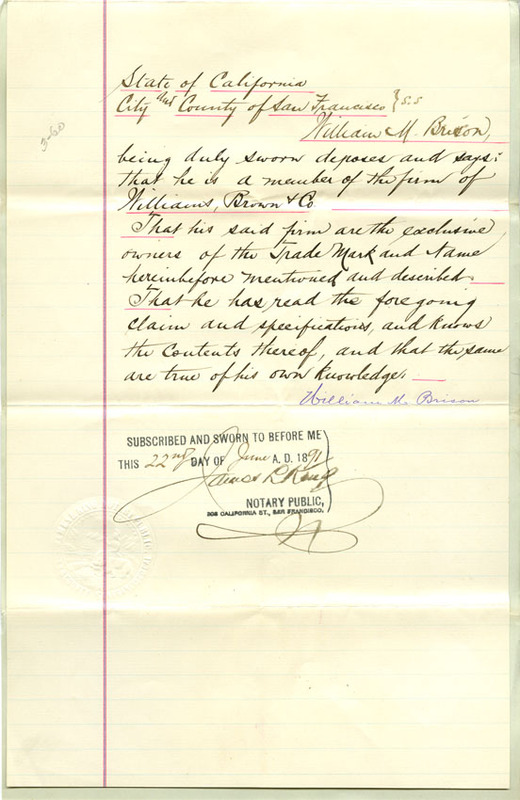 State of California
City and County of San Francisco } S.S
3-60
William M. Brison,
being duly sworn deposes and says:
that he is a member of the firm of
Williams, Brown & Co
That his said firm are the exclusive
owners of the Trade Mark and Name
hereinbefore mentioned and described.
That he has read the foregoing
claim and specifications, and knows
the contents thereof, and that the same
are true of his own knowledge.
William M. Brison
SUBSCRIBED AND SWORN TO BEFORE ME
THIS 22nd DAY OF June A. D. 1891
James
NOTARY PUBLIC,
208 CALIFORNIA ST., SAN FRANCISCO.